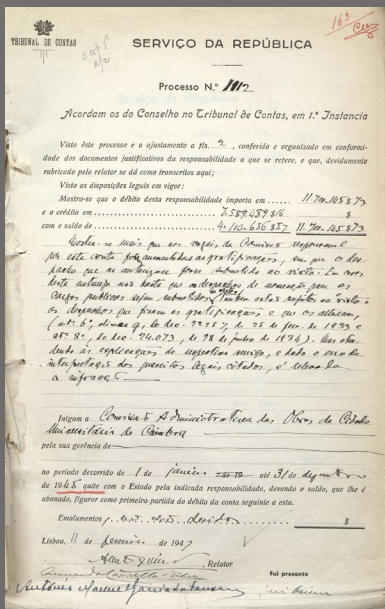 162
TRIBUNAL DE CONTAS
SERVIÇO DA REPÚBLICA
Processo N.º 1912
Acordam os do Conselho no Tribunal de Contas, em 1.ª Instancia
Visto êste processo e o ajustamento a fls. 2, conferido e organizado em conformi-
dade dos documentos justificativos da responsabilidade a que se refere, e que, devidamente
rubricado pelo relator se dá como transcritos aqui;
Visto as disposições legais em vigor:
Mostra-se que o débito desta responsabilidade importa em...... 11.700.145$873
e o crédito em 7.589.489$816 $
com o saldo de 4.110.656$857 11.700.145$873
Mostra-se mais que aos vogais da Comissão responsavel
por esta conta foram as gratificações, sem que o des-
pacho que as autorizasse fosse submetido ao visto. Em casos
desta natureza não basta que os despachos de nomeação para os
cargos publicos sejam submetidos, tambem estão sujeitos ao visto
os despachos que fixam as gratificações e que os alteram,
(artº 6º, do dec. 22257, de 25 de fev. de 1933 e
artº 8º, do dec. 24.073, de 28 de junho de 1934). Mas aten-
dendo ás explicações do respectivo serviço, e dado o erro de
interpretação dos preceitos legais citados, é relevada
a infracção
Julgam a Comissão Administrativa das Obras da Cidade
Universitária de Coimbra
pela sua gerência de
no período decorrido de 1 de janeiro até 31 de dezembro
de 1945 quite com o Estado pela indicada responsabilidade, devendo o saldo, que lhe é
abonado, figurar como primeira partida do débito da conta seguinte a esta.
Emolumentos não são devidos $
Lisboa, 11 de fevereiro de 1947
, Relator
Fui presente